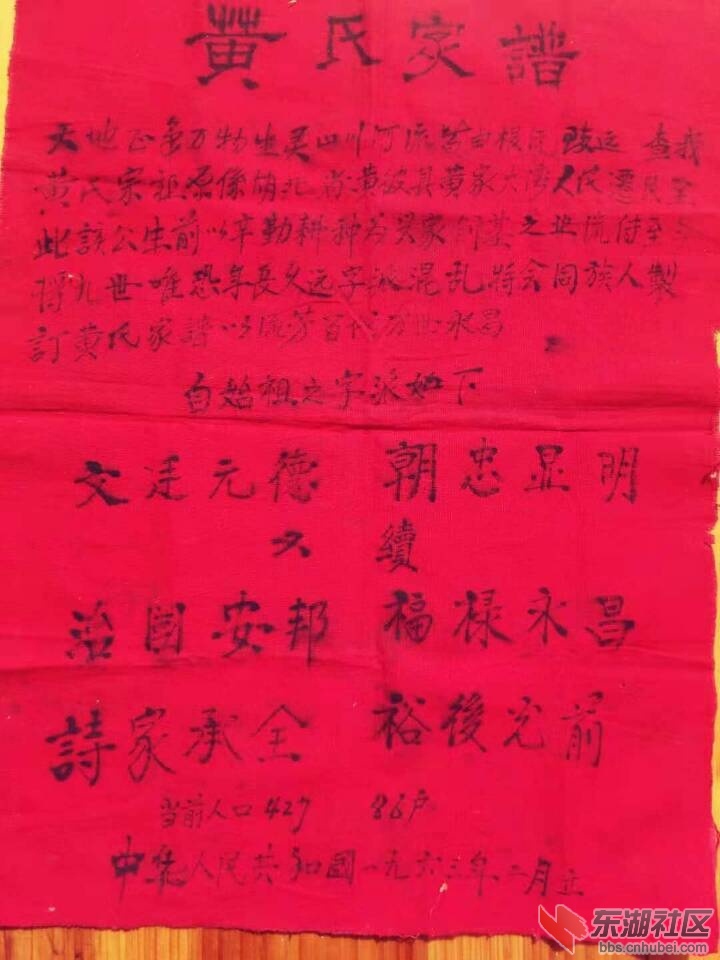 黄氏家譜
天地正气万物生灵山川河流皆由根氏 查我
黄氏宗祖 係胡北省黄彼县黄家大湾人民遷
此該公生前以辛勤耕种为兴家 之世流付至
九世唯恐年長久远字派混乱特会同族人製
訂黄氏家譜以流芳百代万世永昌
自始祖之字派如下
文廷元德 朝忠显明
又 續
治國安邦 福禄永昌
詩家承全 裕後光前
当前人口427 86户
中华人民共和國一九六三年二月立
东湖社区
bbs.cnhubei.com